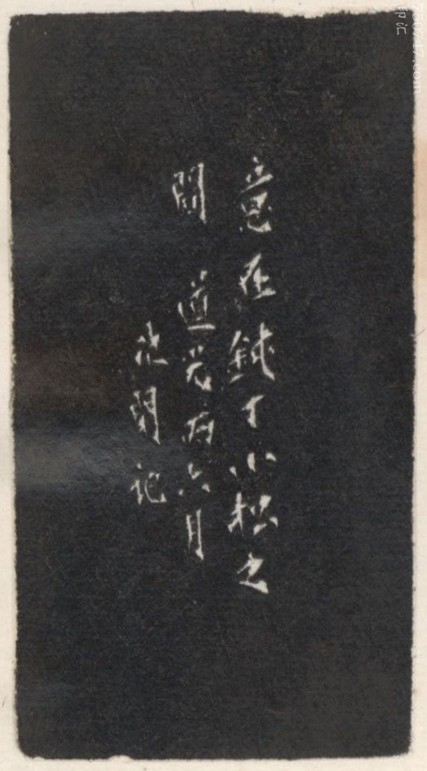 意在鈍丁小松之
間 道光丙六月
記